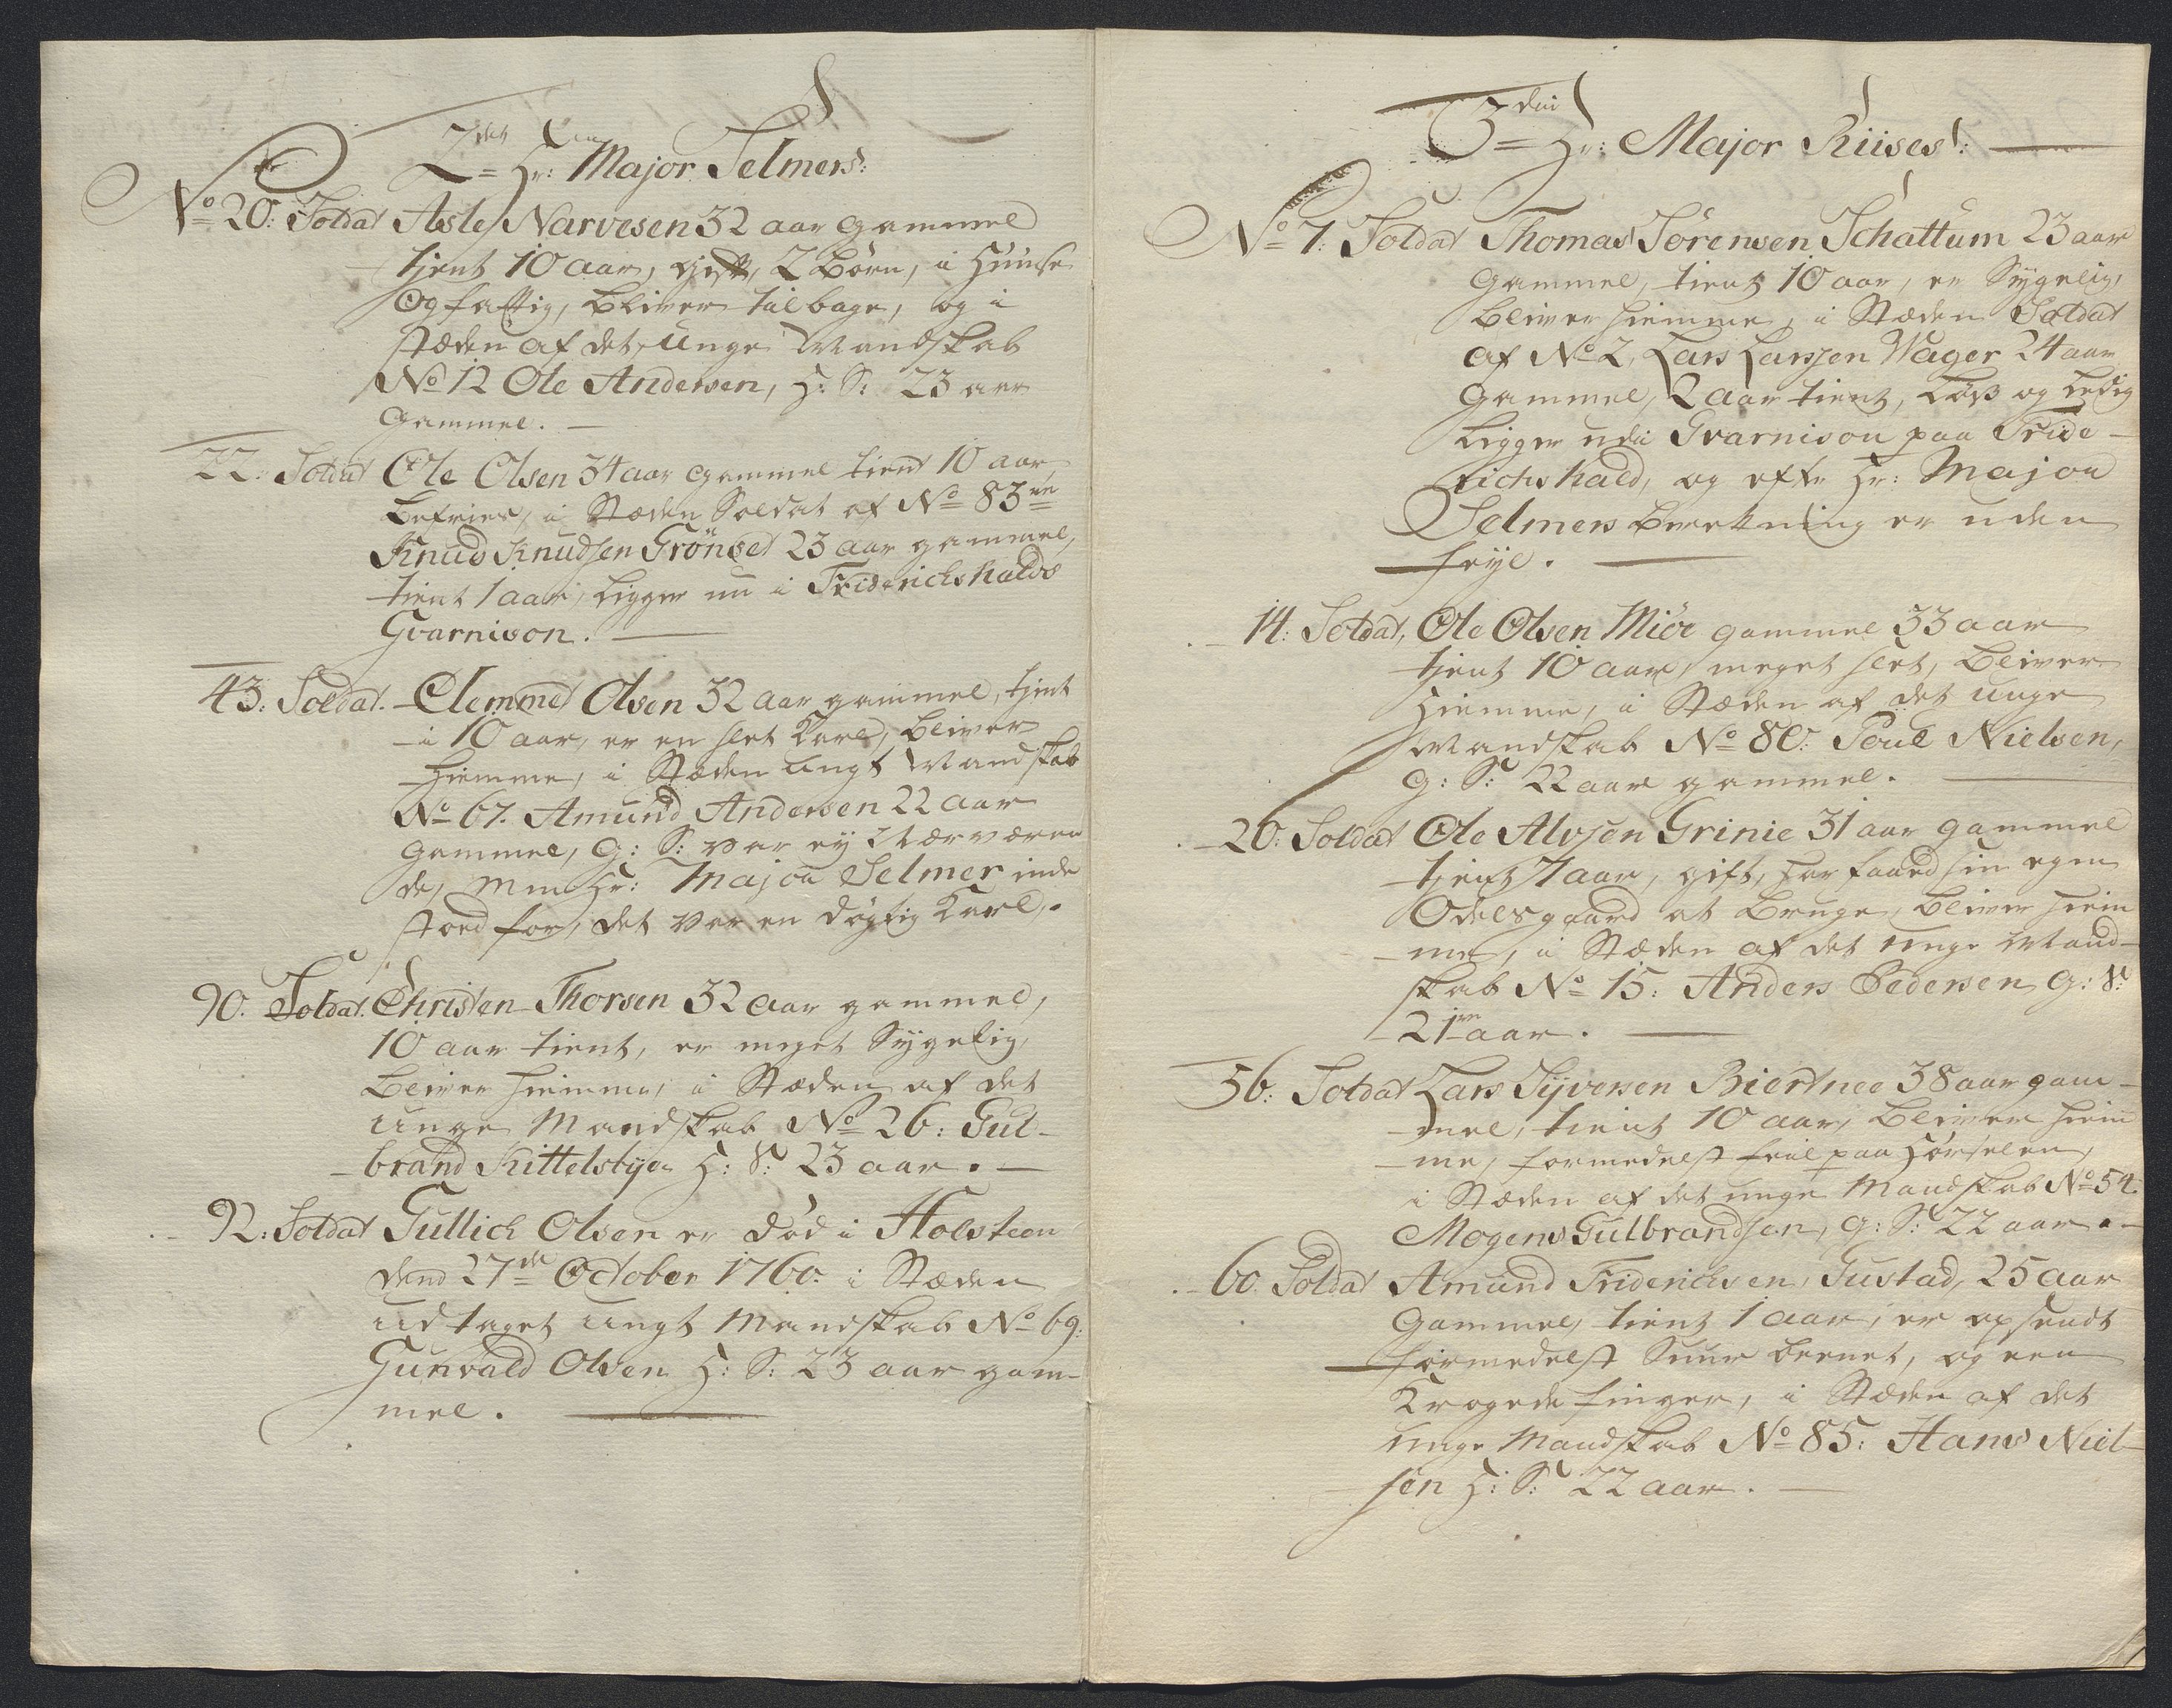 2den Hr: Major Selmers:
No 20: Soldat Asle Narvesen 32 aar gammel
tjent 10 aar, gift, 2 Børn, i Huuse
og fattig, bliver tilbage, og i
stæden af det unge Mandskab
No 12 Ole Andersen, H: S: 23 aar
gammel.
22: Soldat Ole Olsen 34 aar gammel tient 10 aar,
befries, i Stæden Soldat af No 83
Knud Knudsen Grönset 23 aar gammel,
tient 1 aar, ligger nu i Friderichshalds
Gvarnison.
43: Soldat. Clemmet Olsen 32 aar gammel, tjent
i 10 aar, er en slet Karl, bliver
hiemme, i Stæden ungt Mandskab
No 67. Amund Andersen 22 aar
gammel, G: S: var ej Nærværen
de, men Hr: Major Selmer inde
stoed for, det var en døgtig Karl.
90. Soldat. Christen Thorsen 32 aar gammel,
10 aar tient, er meget Sygelig,
bliver hiemme, i Stæden af det
unge Mandskab No 26: Gul-
brand Kittelsbye H: S: 23 aar.
92: Soldat Gullich Olsen er død i Holsteen
dend 27de October 1760. i Stæden
udtaget ungt Mandskab No 69:
Gunvald Olsen H: S: 23 aar gam-
mel.
3die Hr: Major Riises:
No 7: Soldat Thomas Sörensen Schattum 23 aar
gammel, tient 10 aar, er Sygelig,
bliver hiemme, i Stæden Soldat
af No 2, Lars Larssen Wager 24 aar
gammel, 2 aar tient, løs og ledig
ligger udi Gvarnison paa Fride-
richshald, og efter Hr: Major
Selmers beretning er uden
feyl.
14: Soldat, Ole Olsen Miör gammel 33 aar
tjent 10 aar, meget slet, bliver
hiemme, i Stæden af det unge
Mandskab No 80: Poul Nielsen,
G: S: 22 aar gammel.
20: Soldat Ole Alvsen Grinie 31 aar gammel
tjent 7 aar, gift, har faaed sin egen
Odelsgaard at bruge, bliver hiem
me, i Stæden af det unge Mand-
skab No 15: Anders Pedersen G: S:
21 aar.
56: Soldat Lars Syversen Biertnee 38 aar gam-
mel, tient 10 aar, bliver hiem
me, formedelst feil paa Hørselen,
i Stæden af det unge Mandskab No 54.
Mogens Gulbrandsen, G: S: 22 aar.
60. Soldat Amund Friderichsen Gustad, 25 aar
gammel, tient 1 aar, er opsendt
formedelst Snur beenet, og een
Krogede finger, i Stæden af det
unge Mandskab No 85: Hans Niel-
sen H: S: 22 aar.